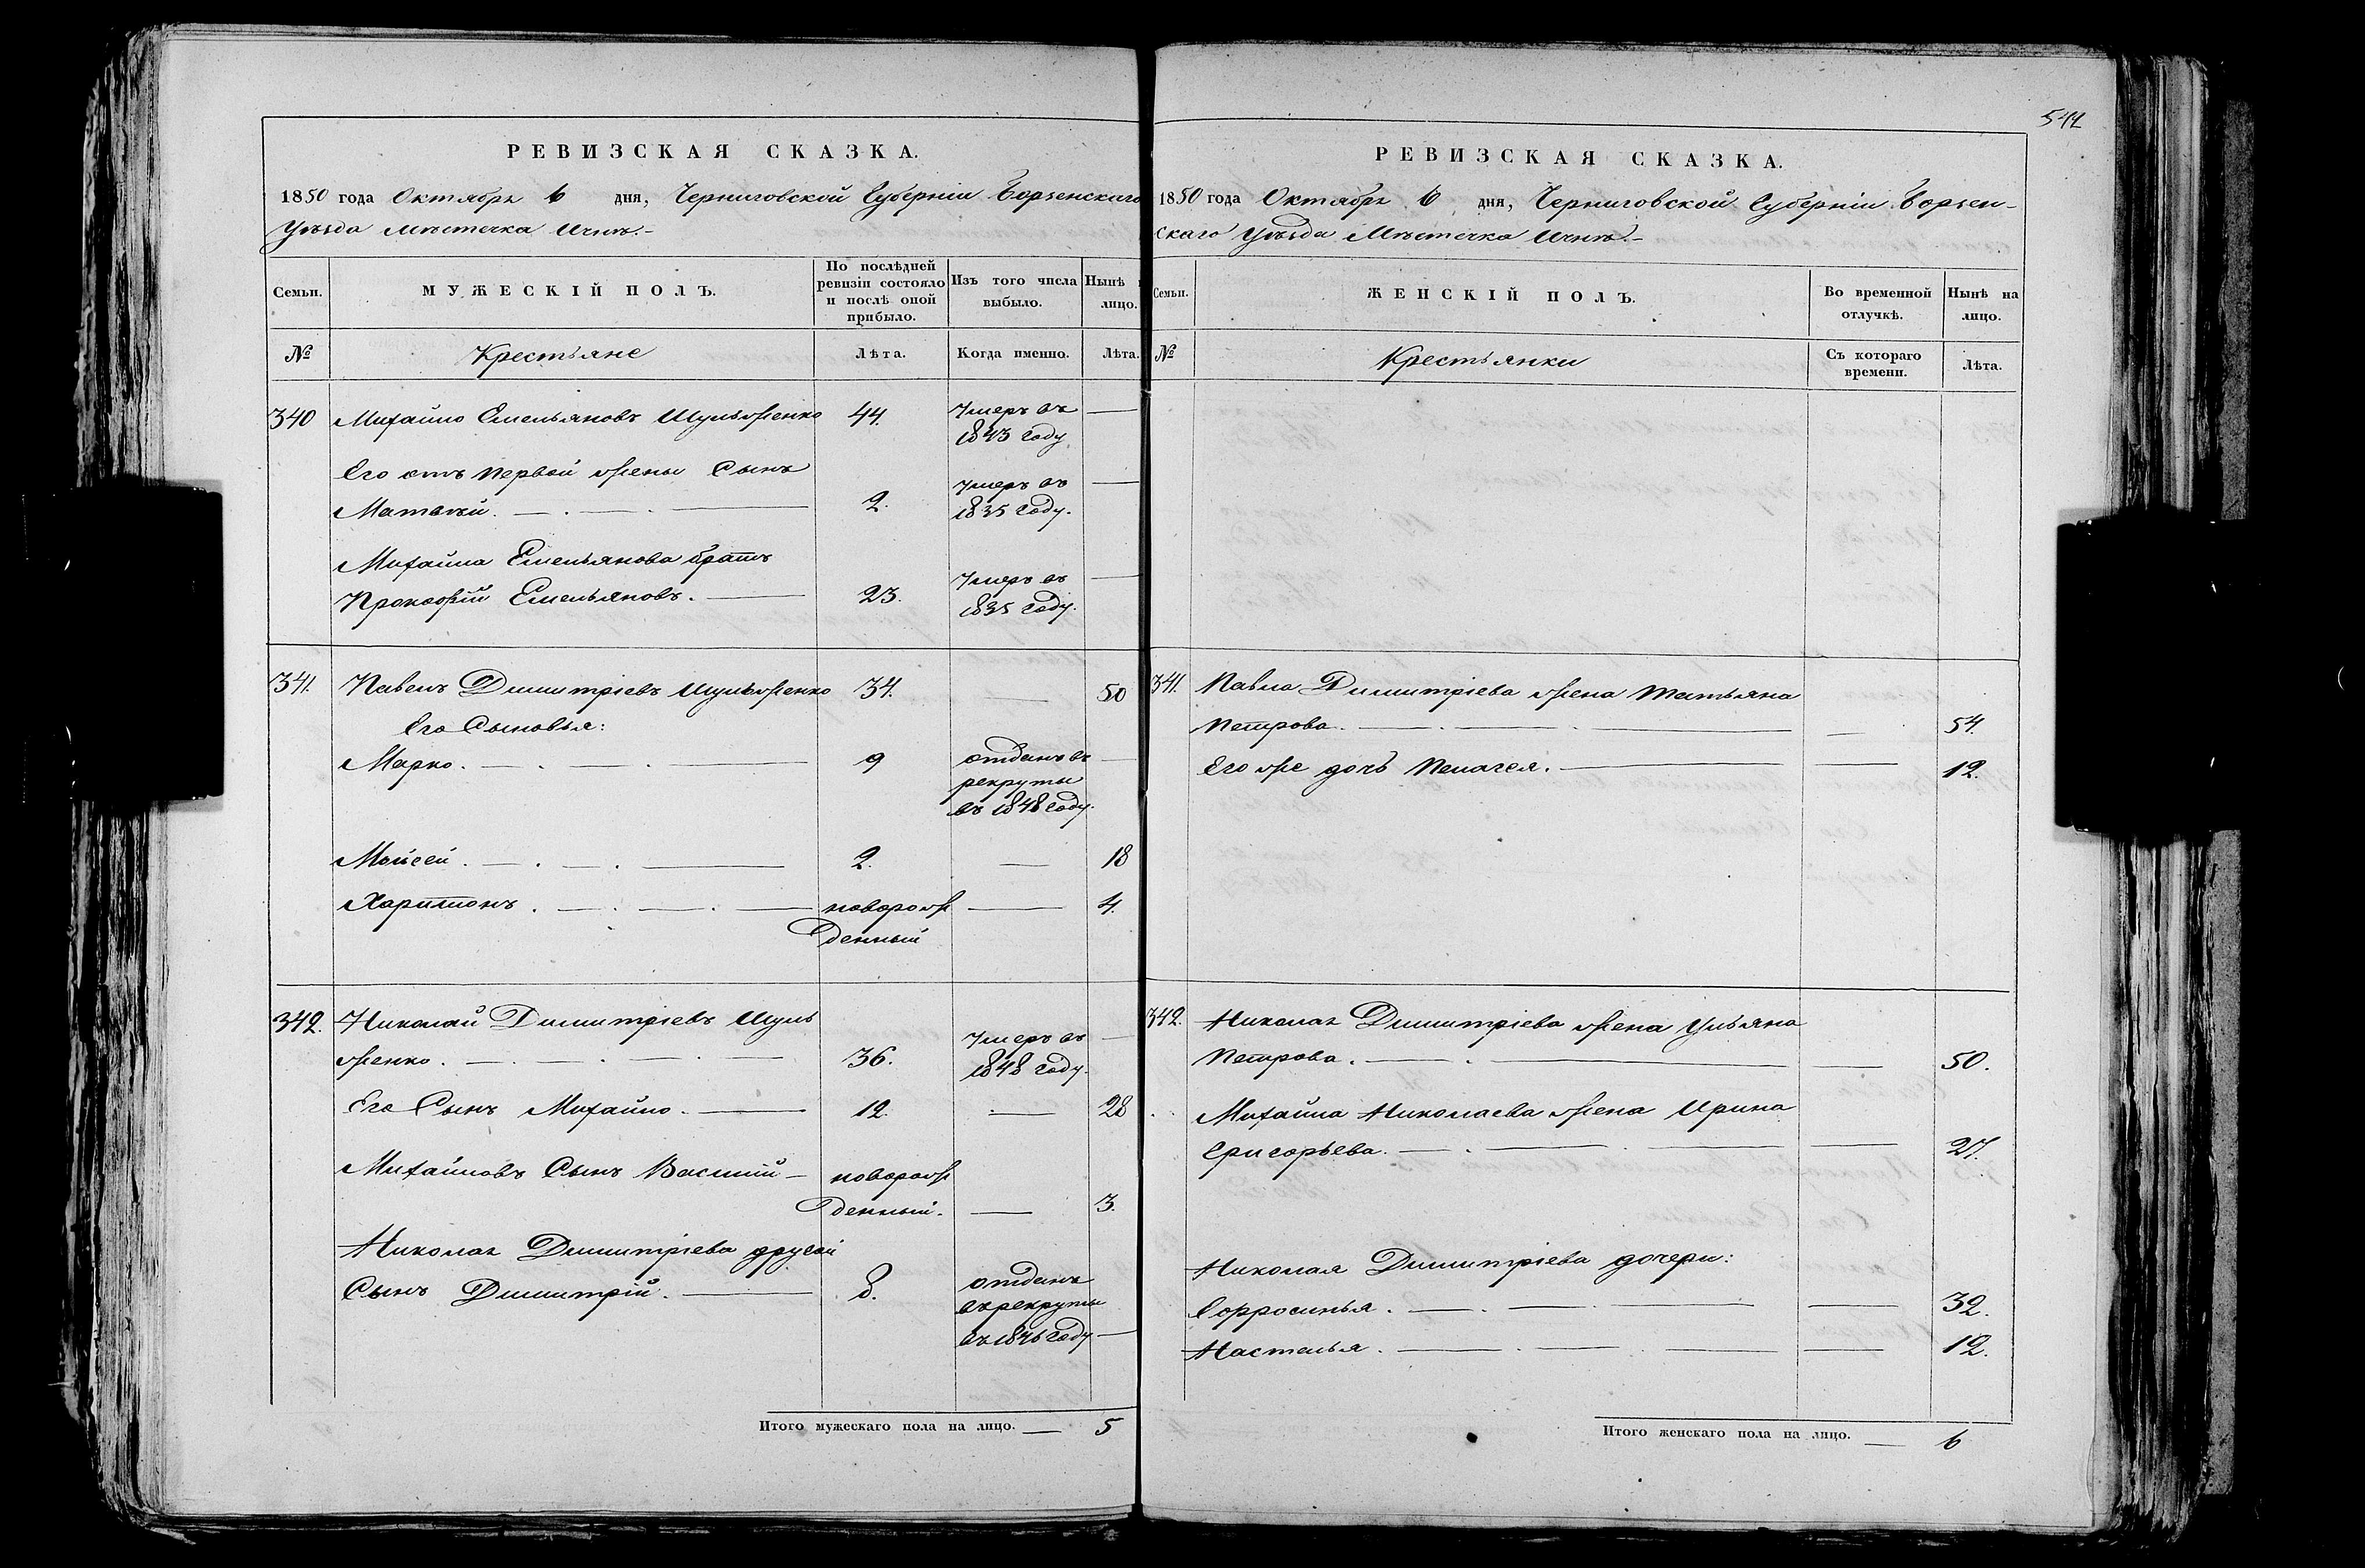 542
РЕВИЗСКАЯ СКАЗКА.
1850 года Октября 6 дня, Черниговской Губерніи Борзенскаго
Уѣзда Мѣстечка Ичнѣ.
Семьи.
МУЖЕСКІЙ ПОЛЪ.
По послѣдней ревизіи состояло и послѣ оной прибыло.
Изъ того числа выбыло.
Нынѣ лицо.
№
Крестьяне
Лѣта.
Когда именно.
Лѣта.
340 Михайло Емельяновъ Шульженко 44. Умеръ въ —
1843 году
Его отъ первой жены Сынъ
Матвѣй. — 2. Умеръ въ —
1835 году.
Михайла Емельянова братъ
Прокофій Емельяновъ. — 23. Умеръ въ —
1835 году.
341. Павелъ Димитріевъ Шульженко 34. — 50
Его Сыновья:
Марко. — 9 отданъ въ —
рекруты
въ 1848 году.
Мойсей. — 2. — 18
Харитонъ. — новорож — 4.
денный
342. Николай Димитріевъ Шуль
женко. — 36. Умеръ въ —
1848 году.
Его Сынъ Михайло. — 12. — 28
Михайловъ Сынъ Василій — новорож
денный. — 3.
Николая Димитріева другой
Сынъ Димитрій. — 8. отданъ
въ рекруты
въ 1846 году —
Итого мужескаго пола на лицо. — 5
РЕВИЗСКАЯ СКАЗКА.
1850 года Октября 6 дня, Черниговской Губерніи Борзен-
скаго Уѣзда Мѣстечка Ичнѣ.
Семьи.
ЖЕНСКІЙ ПОЛЪ.
Во временной отлучкѣ.
Нынѣ на лицо.
№
Крестьянки
Съ котораго времени.
Лѣта.
341. Павла Димитріева жена Татьяна
Петрова. — — 54.
Его же дочь Пелагея. — — 12.
342. Николая Димитріева жена Ульяна
Петрова. — — 50.
Михайла Николаева жена Ирина
Григорьева. — — 27.
Николая Димитріева дочери:
— — 32.
— — 12.
Итого женскаго пола на лицо. — 6